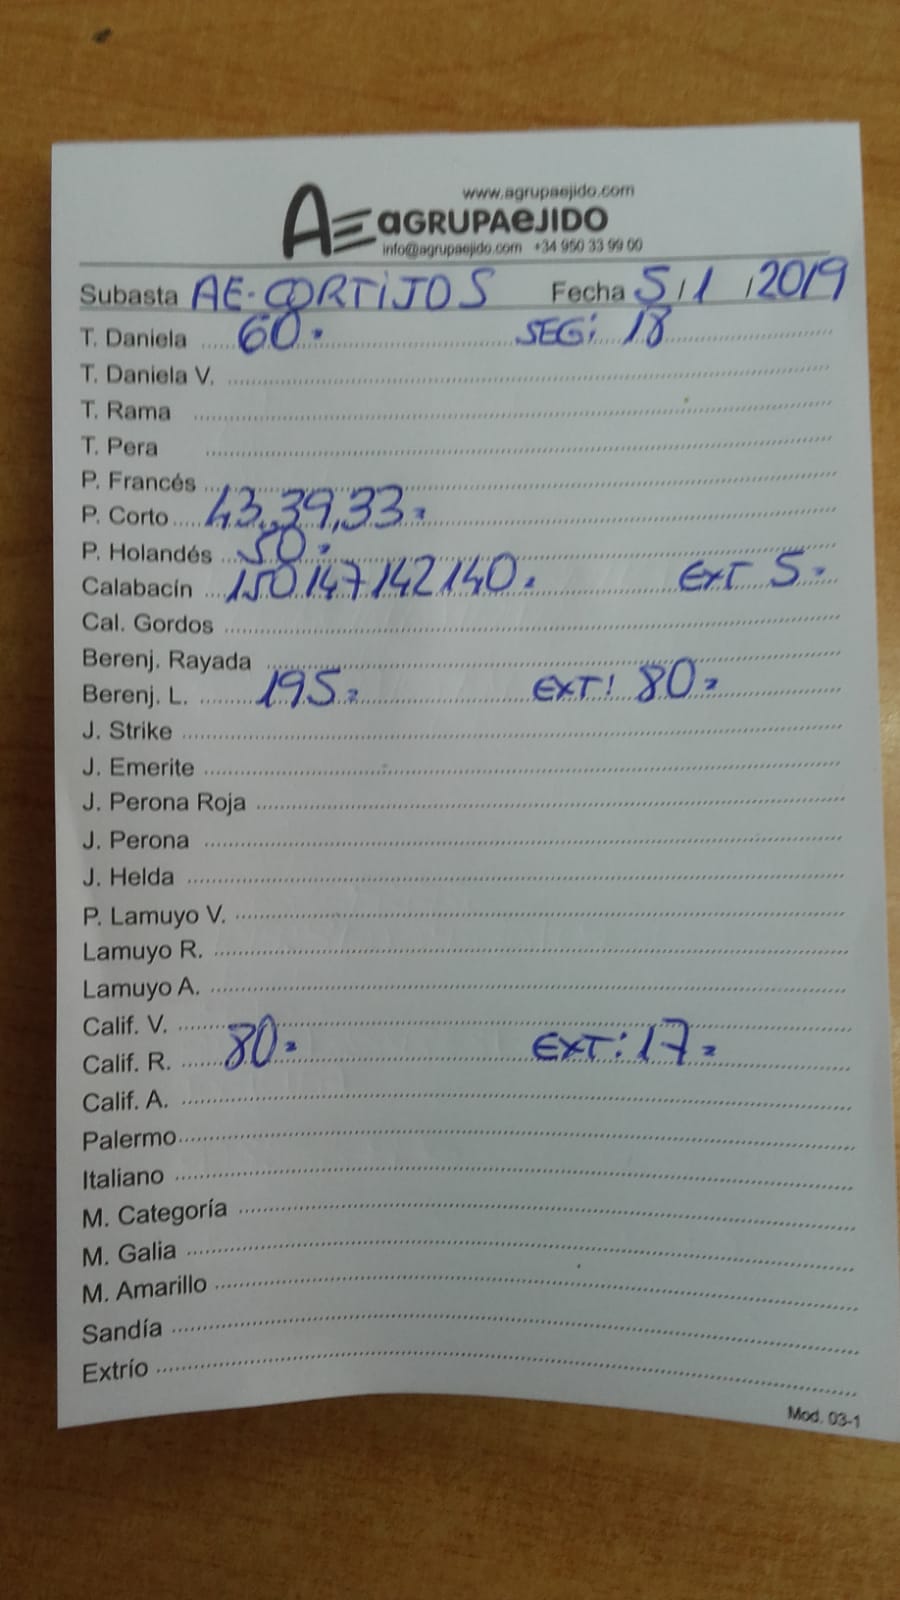 www.agrupaejido.com
AE aGRUPAeJIDO
info@agrupaejido.com +34 950 33 99 00
Subasta AE-CORTIJOS Fecha 5/1/2019
T. Daniela 60. SEG: 18
T. Daniela V.
T. Rama
T. Pera
P. Francés
P. Corto 43,39,33.
P. Holandés 50.
Calabacín 150 147 142 140. EXT 5.
Cal. Gordos
Berenj. Rayada
Berenj. L. 195. EXT: 80.
J. Strike
J. Emerite
J. Perona Roja
J. Perona
J. Helda
P. Lamuyo V.
Lamuyo R.
Lamuyo A.
Calif. V.
Calif. R. 80. EXT: 17.
Calif. A.
Palermo
Italiano
M. Categoría
M. Galia
M. Amarillo
Sandía
Extrío
Mod. 03-1